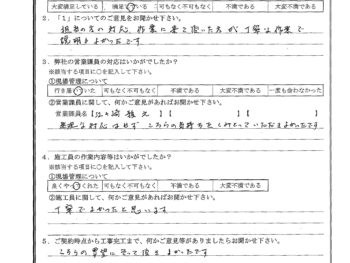 大変満足している　満足している　可もなく不可もなく　不満である　大変不満である
２．「１」についてのご意見をお聞かせ下さい。
担当の方の対応、作業に来て頂いた方が丁寧な作業で
説明もよかったです
３．弊社の営業議員の対応はいかがでしたか？
※該当する項目に○記入して下さい。
①現場管理について
行き届いていた　可もなく不可もなく　不満である　大変不満である　一度も会わなかった
②営業議員に関して、何かご意見があればお聞かせ下さい。
営業議員名【
】【　】【　】
無理な対応はせず こちらの気持ちをくみとっていただきよかったです
４．施工員の作業内容等はいかがでしたか？
※該当する項目に○記入して下さい。
①現場管理について
良くやってくれた　可もなく不可もなく　不満である　大変不満である
②施工員に関して、何かご意見があればお聞かせ下さい。
丁寧でよかったと思います
５．ご契約時点から工事完工まで、何かご意見等がありましたらお聞かせ下さい。
こちらの要望に
頂きよかったです